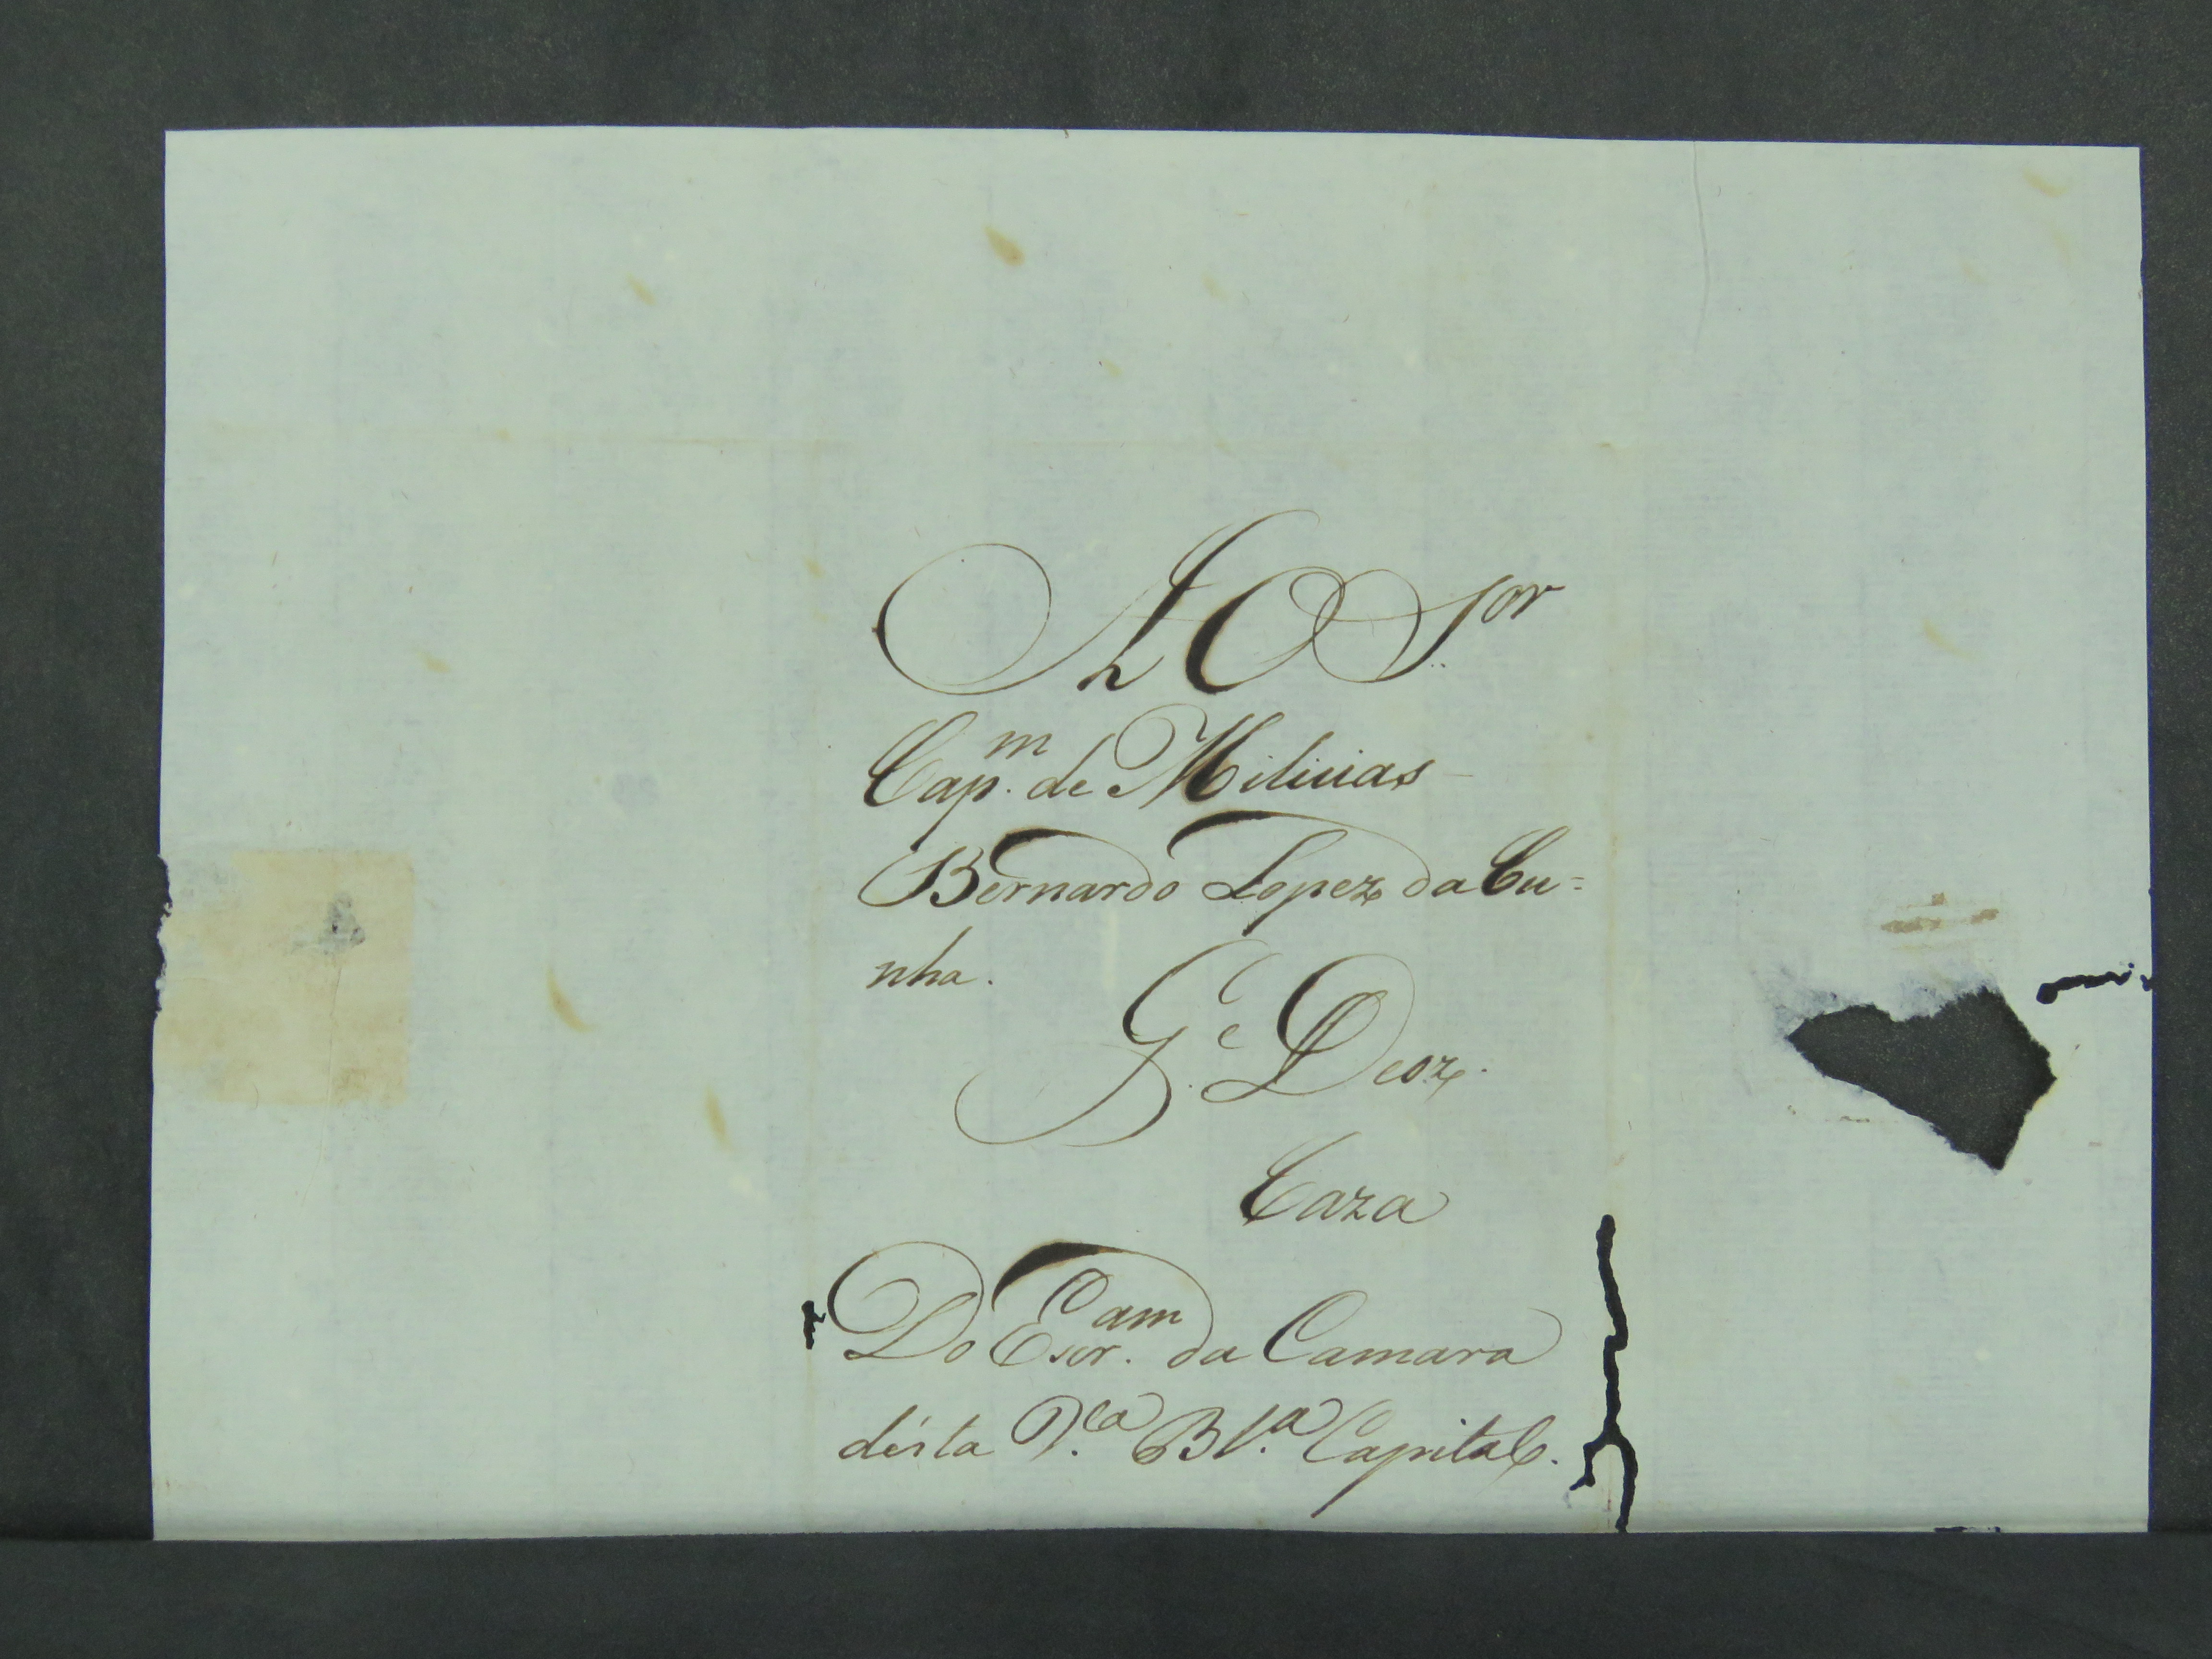 AO Sor
Capm. de Milicias
Bernardo Lopez da Cu=
nha.
Ge. Deoz.
Caza
Do Escram. da Camara
désta Va. Capital.